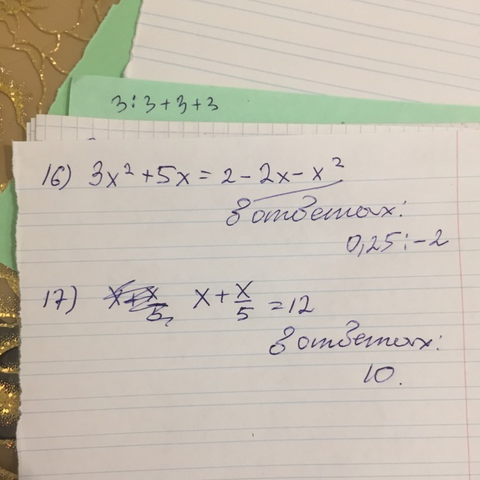 3:3+3+3
16) 3x² + 5x = 2 - 2x - x²
в ответах:
0,25; -2
17) x + x/5 = 12
в ответах:
10.